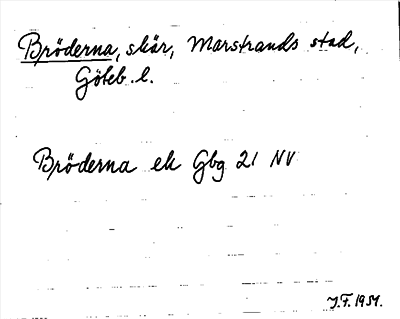 Bröderna, skär, Marstrands stad,
Göteb. l.
Bröderna ek Gbg 21 NV
J.F. 1951.